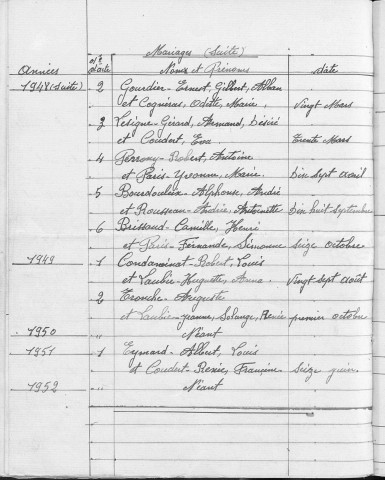 Mariages (Suite)
Années n° d'acte Noms et Prénoms date
1948 (Suite) 2 Gourdin - Ernest, Gilbert, Alban
et Cognéras, Odette, Marie, Vingt Mars
3 Lesigne - Gérard, Armand, Désiré
et Coudert, Eva Trente Mars
4 Perrony - Robert, Antoine
et Paris - Yvonne, Marie. Dix sept avril
5 Bourdouleix - Alphonse, André
et Rousseau - Andrée, Antoinette Dix huit septembre
6 Brissaud - Camille, Henri
et Paris - Fernande, Simonne seize octobre
1949 1 Condaminat - Robert, Louis
et Laubie - Huguette, Anna. Vingt sept août
2 Tronche - Auguste
et Laubie - Jeanne, Solange, Renée premier octobre
1950 " Néant
1951 1 Eymard - Albert, Louis
et Coudert - Renée, Françine seize juin
1952 " Néant